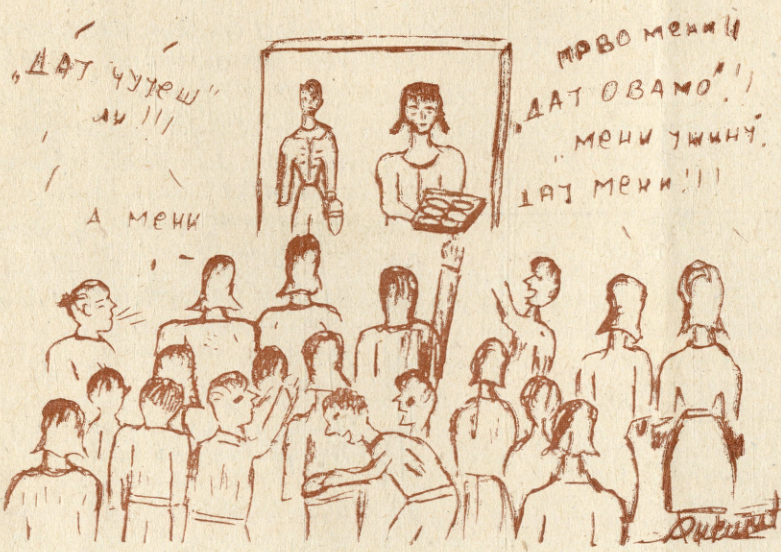 „ДАЈ ЧУЈЕШ"
ЛИ !!!
А МЕНИ
ПРВО МЕНИ !!
„ДАЈ ОВАМО"!!
„МЕНИ УЖИНУ"
ДАЈ МЕНИ!!!